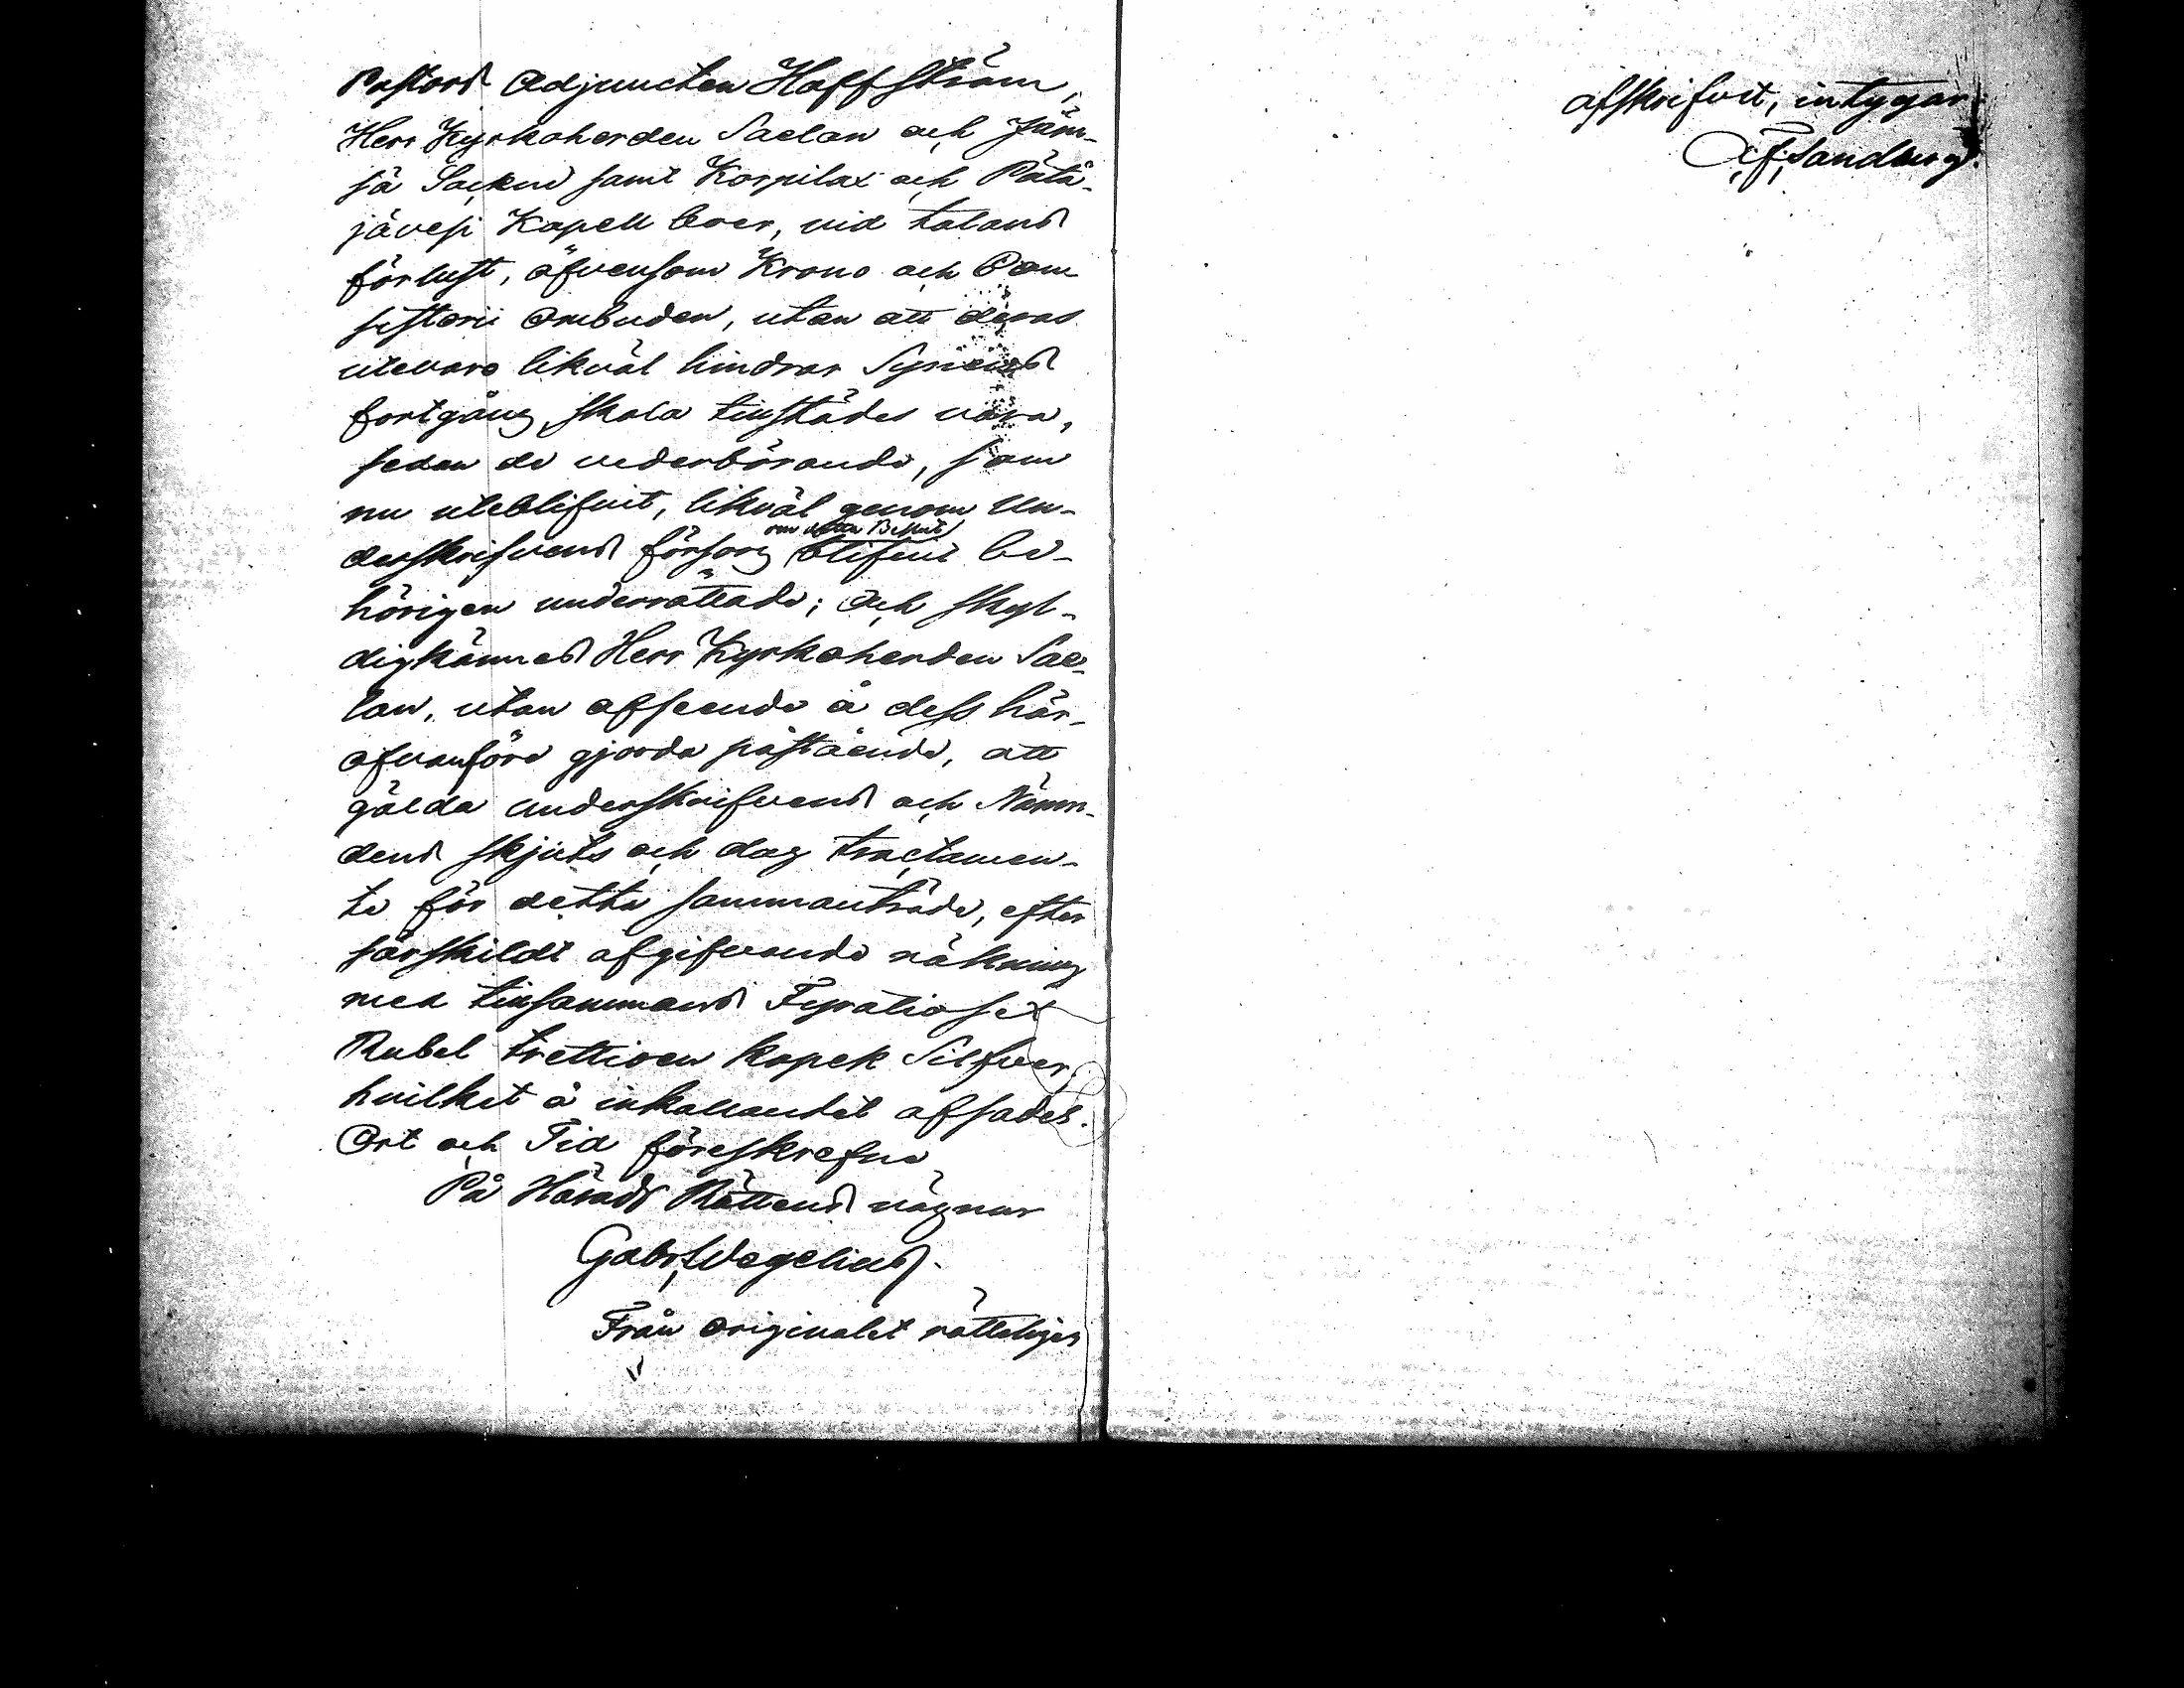 Pastors Adjuncten Hoffström,
Herr Kyrkoherden Saelan och Jäm-
sä Sockne samt Korpilax och Pätä-
jävesi Kapell boer, vid talans
förlust, äfvensom Krono och Con
sistorii Ombuden, utan att deras
utevaro likväl hindrar Synens
fortgång, skola tillstädes vara,
sedan de vederbörande, som
nu uteblifvit, likväl genom Un-
om detta Beslut
derskrifvens försorg blifvit be-
hörigen underrättade; och skyl-
digkännes Herr Kyrkoherden Sae-
lan, utan afseende å dess här-
ofvanföre gjorda påstående, att
gälda underskrifvens och Nämn-
dens skjuts och dag tractamen-
te för detta sammanträde, efter
särskildt afgifvande räkning
med tillsammans Fyratiosex
Rubel trettioen kopek Silfver,
hvilket å inkallandet afsades.
Ort och Tid föreskrefne
På Härads Rättens vägnar
Gabr. Wegelius.
Från originalet rätteligen
afskrifvit, intygar:
Sandberg.